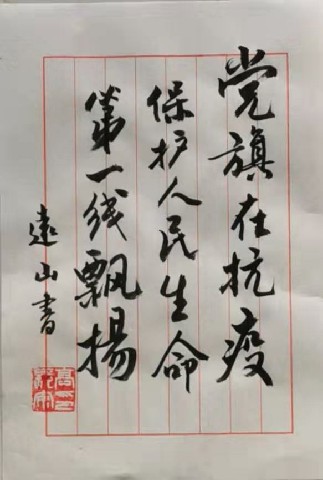 党旗在抗疫
保护人民生命
第一线飘扬
远山书